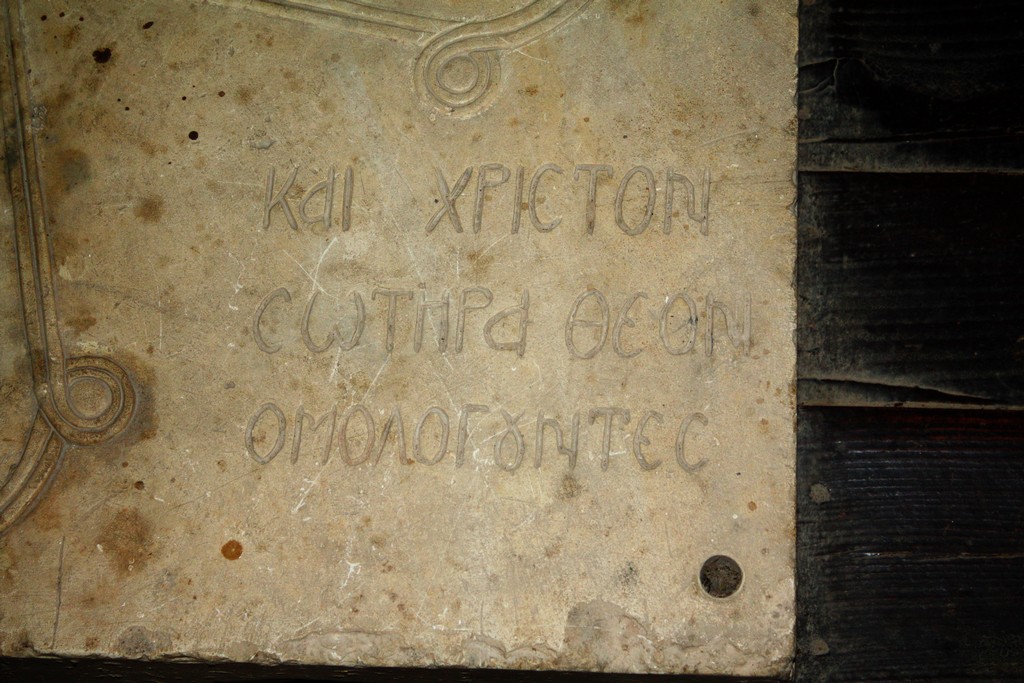 ΚΑΙ ΧΡΙϹΤΟΝ
ϹΩΤΗΡΑ ΘΕΟΝ
ΟΜΟΛΟΓȢΝΤΕϹ